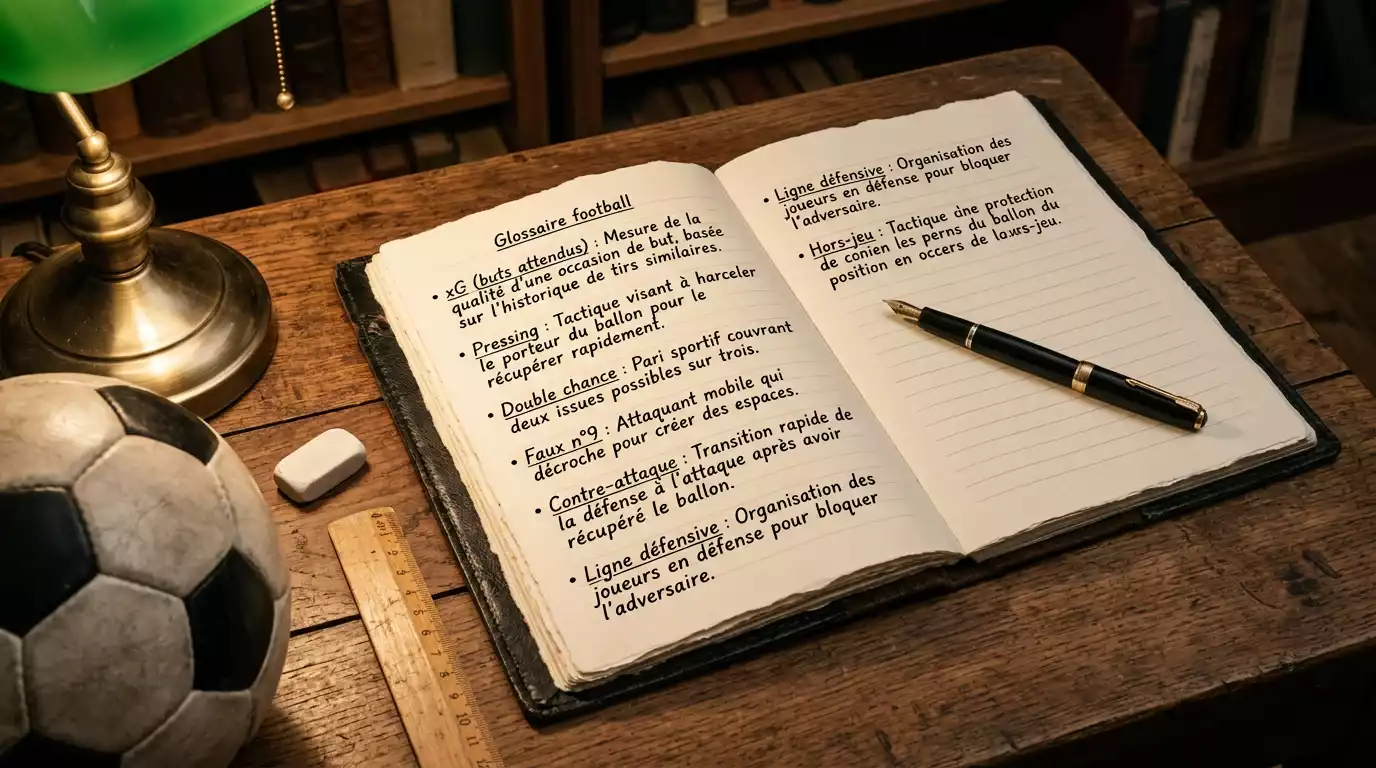 Glossaire football
• xG (buts attendus) : Mesure de la
qualité d'une occasion de but, basée
sur l'historique de tirs similaires.
• Pressing : Tactique visant à harceler
le porteur du ballon pour le
récupérer rapidement.
• Double chance : Pari sportif couvrant
deux issues possibles sur trois.
• Faux n°9 : Attaquant mobile qui
décroche pour créer des espaces.
• Contre-attaque : Transition rapide de
la défense à l'attaque après avoir
récupéré le ballon.
• Ligne défensive : Organisation des
joueurs en défense pour bloquer
l'adversaire.
• Ligne défensive : Organisation des
joueurs en défense pour bloquer
l'adversaire.
• Hors-jeu : Tactique protection
de conien les perns du ballon du
position en occers de